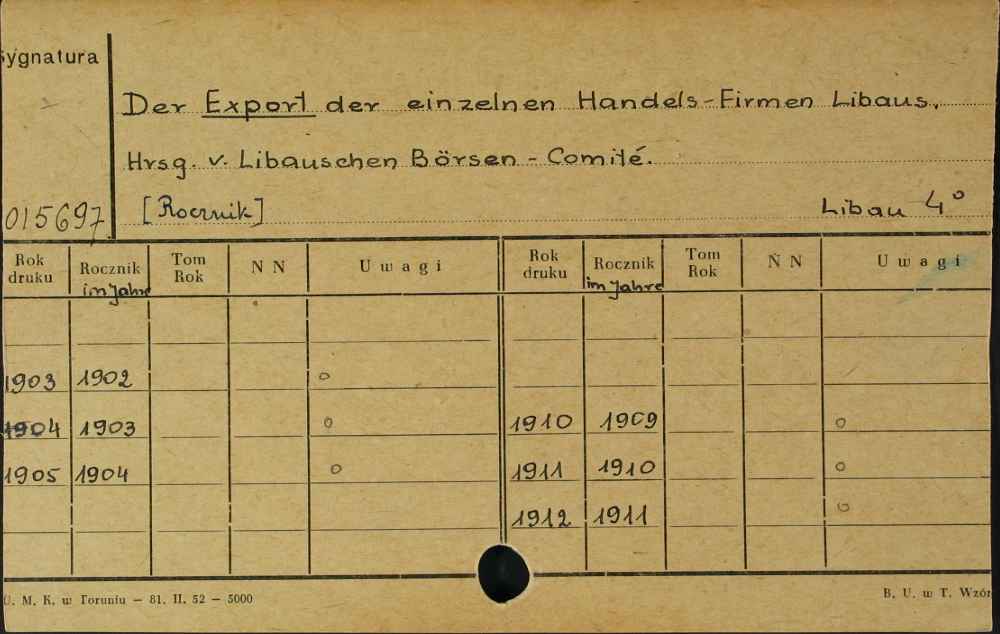 Sygnatura
Der Export der einzelnen Handels-Firmen Libaus.
Hrsg. v. Libauschen Börsen - Comité.
015697 [Rocznik] Libau 4°
Rok druku Rocznik im Jahre Tom Rok N N Uwagi Rok druku Rocznik im Jahre Tom Rok N N Uwagi
1903 1902 o
1904 1903 o 1910 1909 o
1905 1904 o 1911 1910 o
1912 1911 o
U. M. K. w Toruniu — 81. II. 52 — 5000 B. U. w T. Wzór